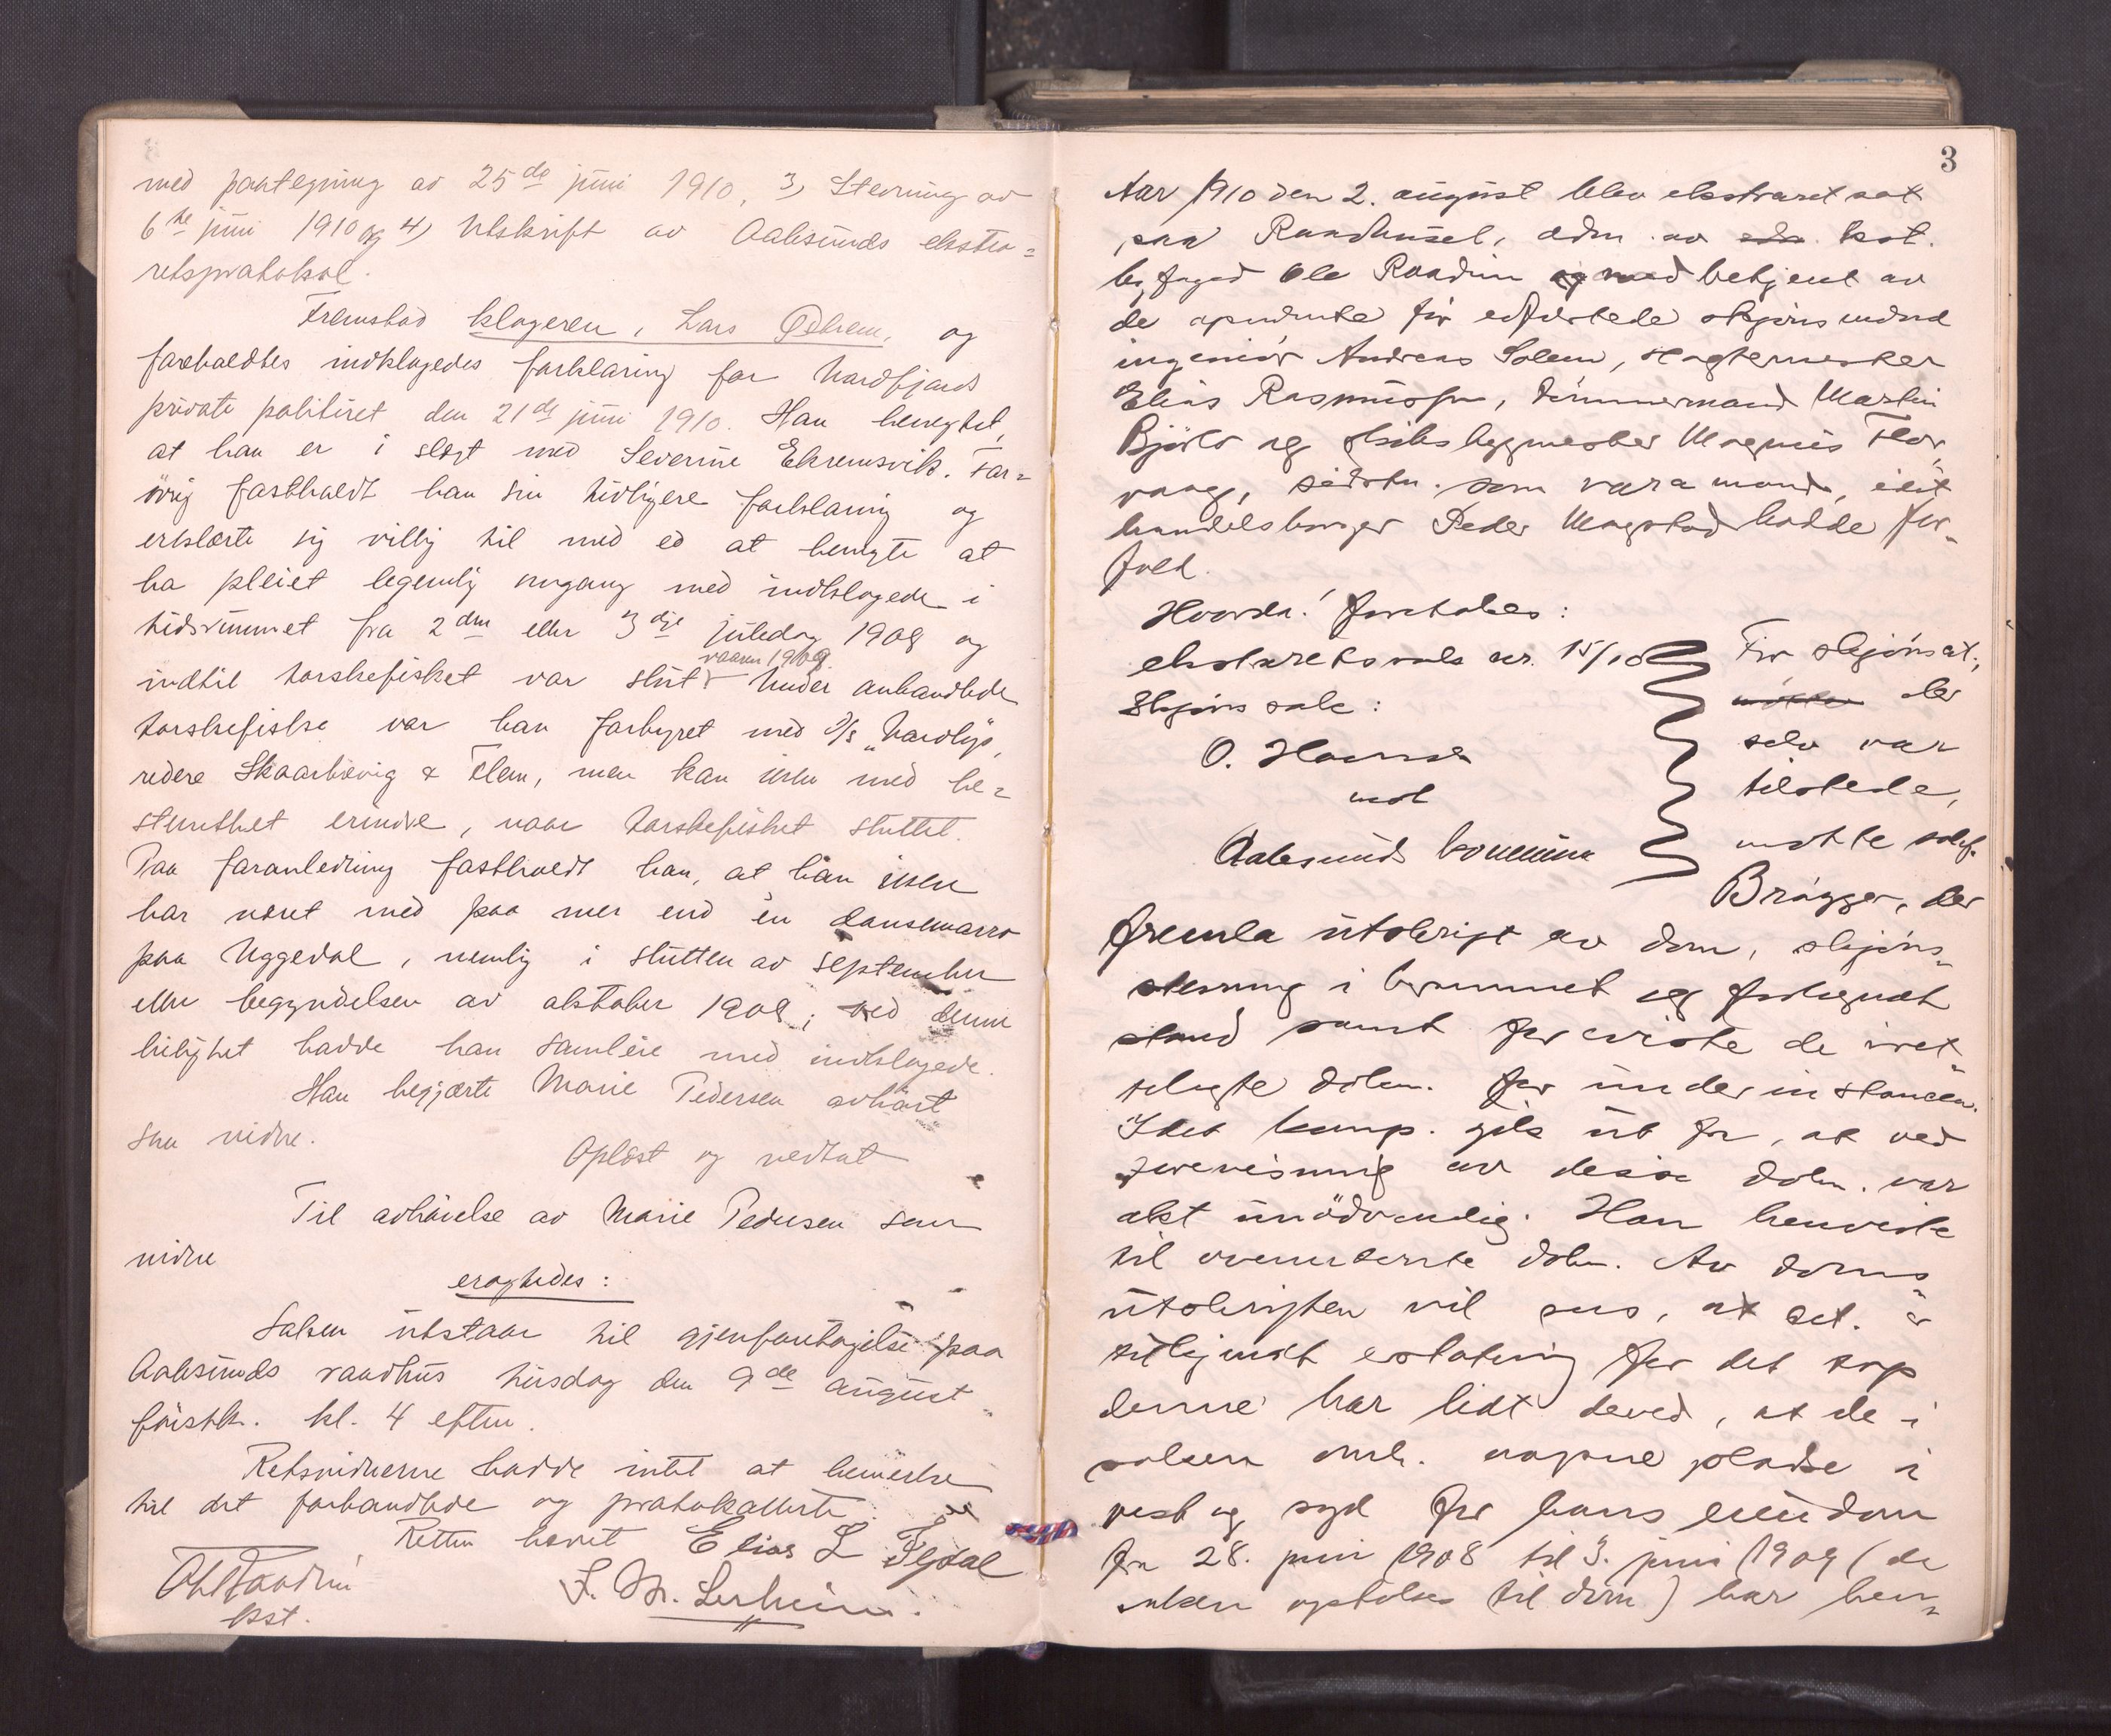 med paategning av 25de juni 1910, 3) Stevning av
6te juni 1910 og 4) Utskrift av Aalesunds ekstra=
retsprotokol.
Fremstod klageren, Lars Ødhem, og
foreholdtes indklagedes forklaring for Nordfjords
private politiret den 21de juni 1910. Han benegtet,
at han er i slegt med Severine Ekremsvik. For=
øvrig fastholdt han sin tidligere forklaring og
erklærte sig villig til med ed at benegte at
ha pleiet legemlig omgang med indklagede i
tidsrummet fra 2den eller 3dje juledag 1908 og
vaaren 1909.
indtil torskefisket var slut. Under anhandlede
torskefiske var han forhyret med D/S "Nordlys",
redere Skaarbrevig & Flem, men kan ikke med be=
stemthet erindre, naar torskefisket sluttet.
Paa foranledning fastholdt han, at han ikke
har været med paa mer end én dansemoro
paa Uggedal, nemlig i slutten av september
eller begyndelsen av oktober 1908; ved denne
leilighet hadde han samleie med indklagede.
Han begjærte Marie Pedersen avhørt
som vidne.
Oplæst og vedtat
Til avhørelse av Marie Pedersen som
vidne
eragtedes:
Saken utstaar til gjenforetagelse paa
Aalesunds raadhus tirsdag den 9de august
førstk. kl. 4 efterm.
Retsvidnerne hadde intet at bemerke
til det forhandlede og protokollerte.
Retten hævet Elias L Fljdal
Ole Raadim
kst.
3
Aar 1910 den 2. august blev ekstraret sat
paa Raadhuset, adm. av kst.
byfoged Ole Raadim med betjent av
de opnævnte før edfæstede skjønsmænd
ingeniør Andreas Solem, slagtermester
Elias Rasmussen, tømmermand Martin
Bjørlo og skibsbygmester Magnus Flor
vaag, sidstn. som varamand, idet
handelsborger Peder Magstad hadde for-
fald.
Hvorda! foretokes:
ekstraretssak nr. 15/10
Skjøns sak:
O. Hovde
mot
Aalesunds kommune
For skjønsat.,
der
selv var
tilstede,
møtte sakf.
Brøgger, der
fremla utskrift av dom, skjøns-
stevning i brummet og forkyndt
stand samt foreviste de i ret
telagte dokm. for underinstancen.
Idet komp. gik ut fra, at ved
forevisning av disse dokm. var
akt unødvendig. Han henviste
til ovennævnte dokm. Av doms
utskriften vil sees, at cit. er
tilkjendt erstatning for det tap
denne har lidt derved, at de i
saken omh. aapne pladse i
vest og syd for hans eiendom
fra 28. juni 1908 til 3. juni 1909 (da
saken optokes til dom) har hen-